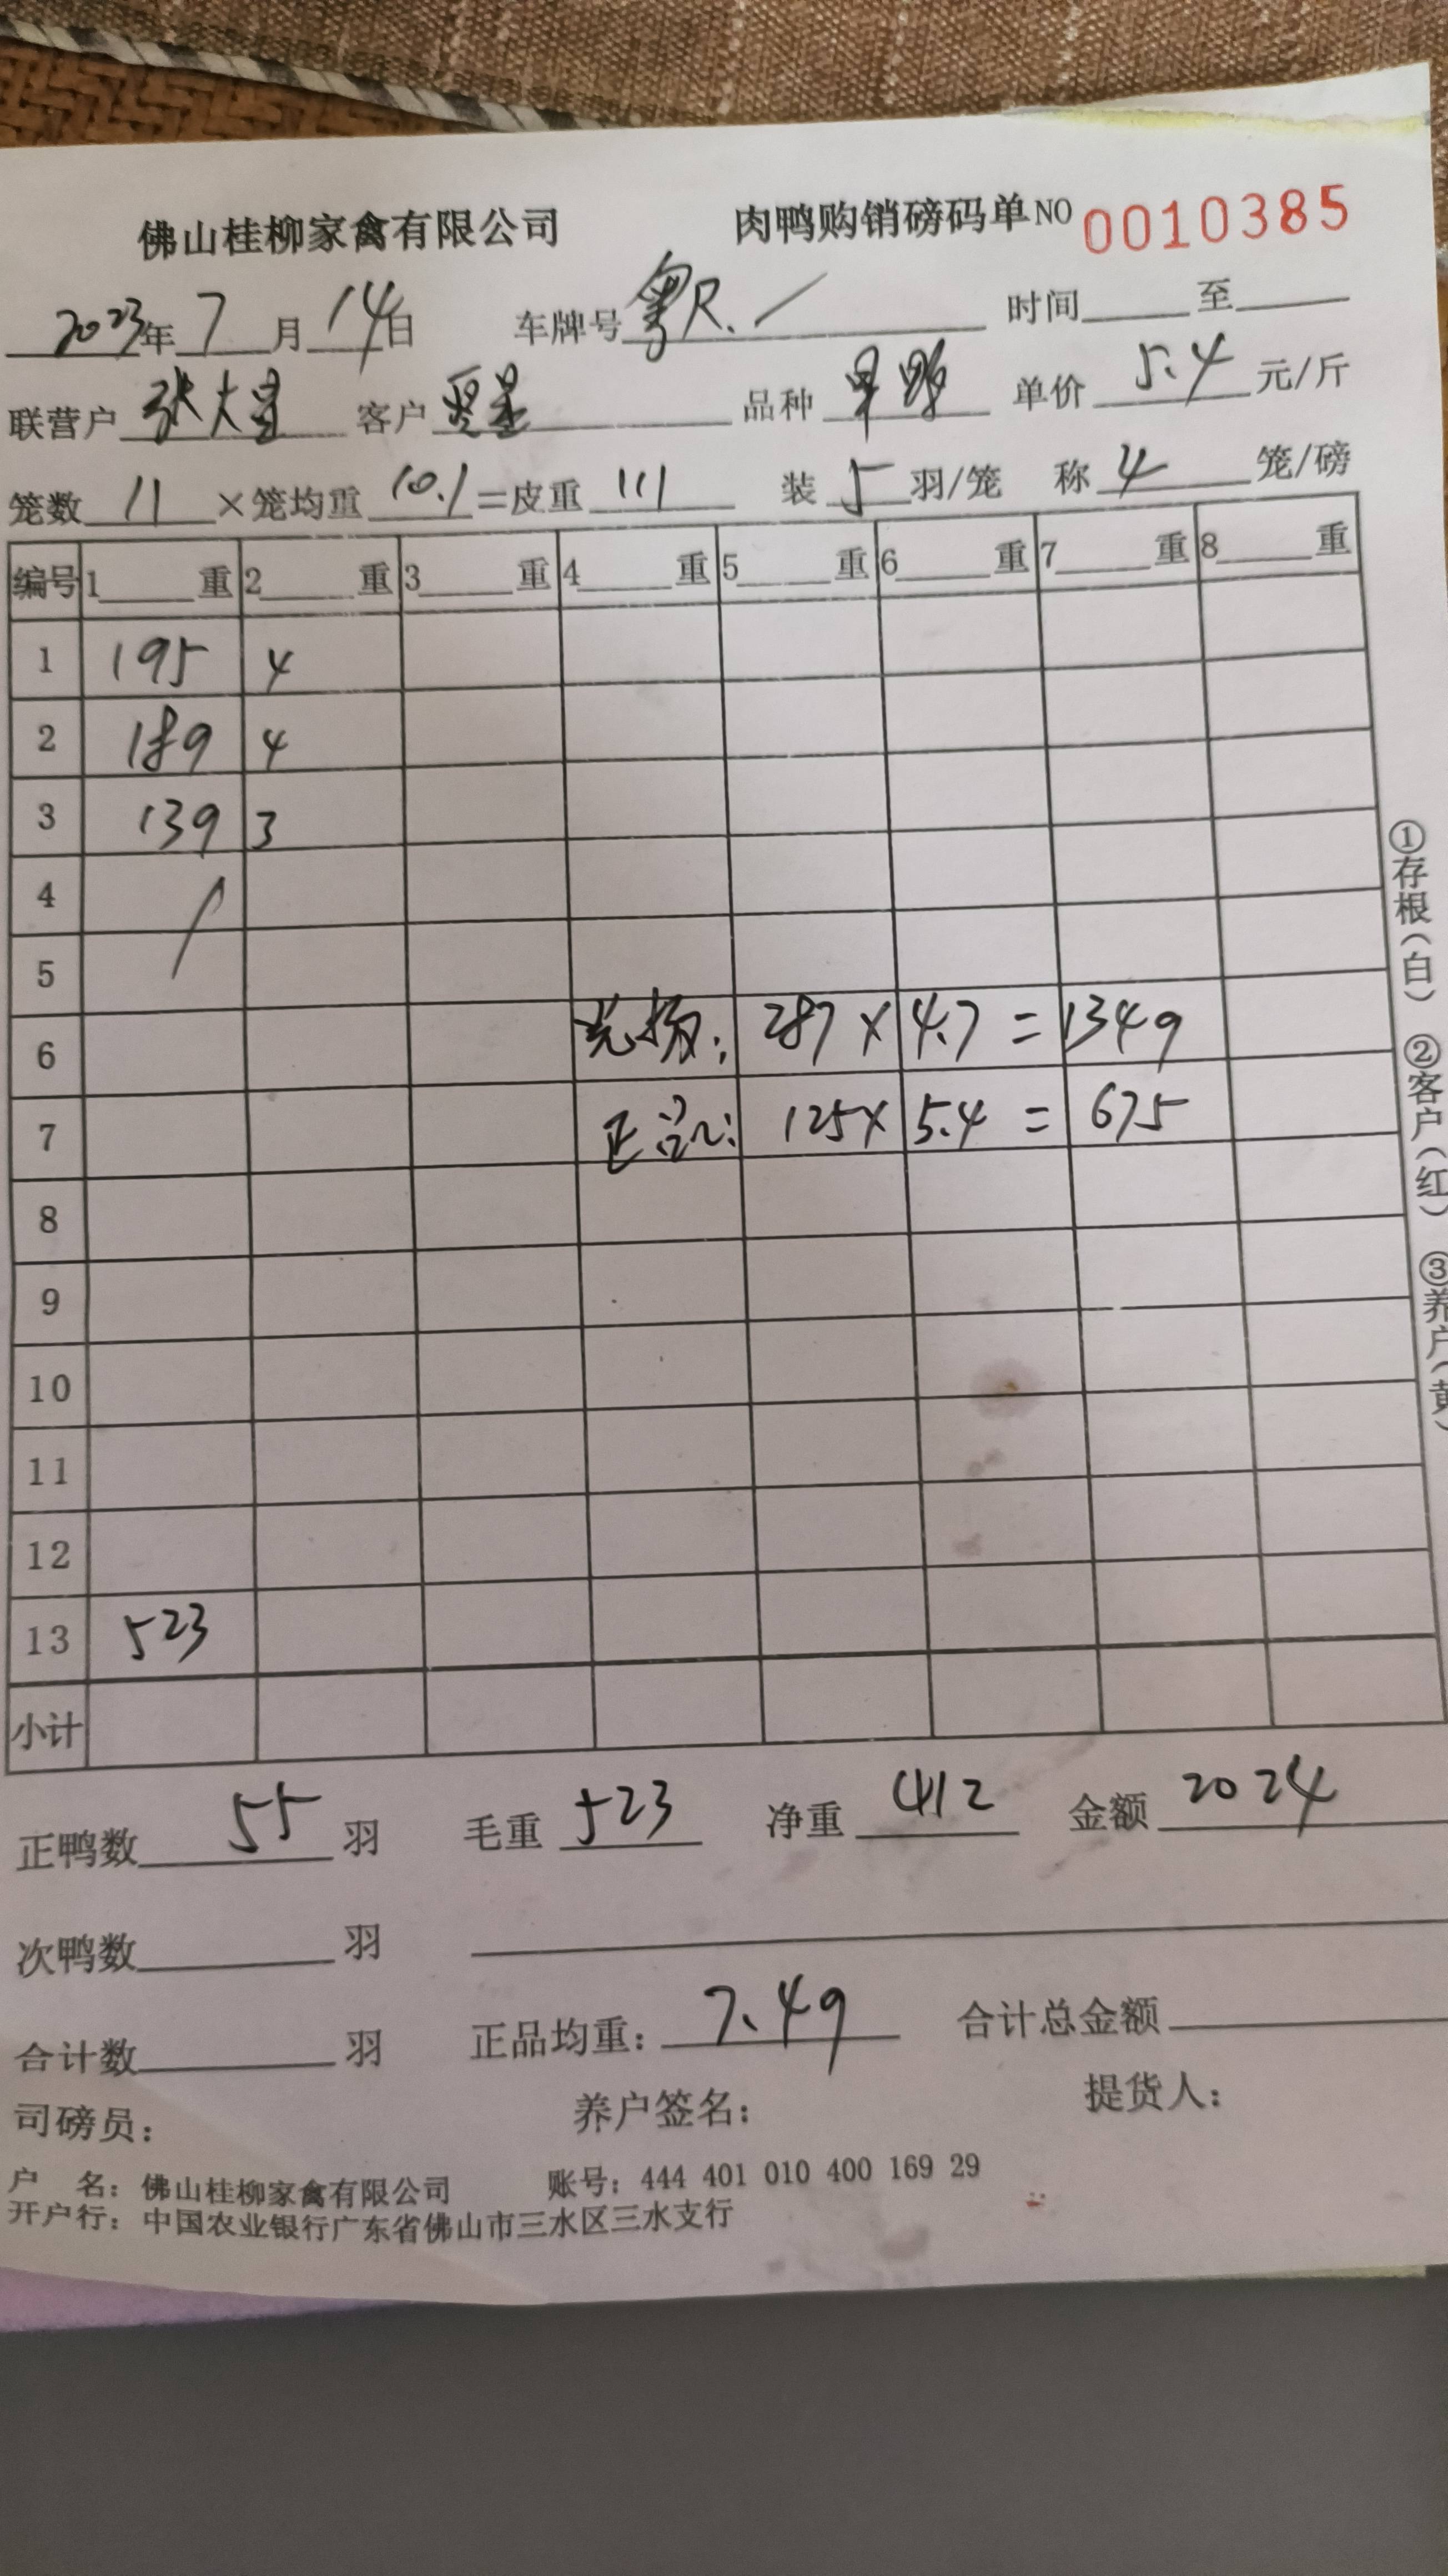 佛山桂柳家禽有限公司 肉鸭购销磅码单NO 0010385
2023年 7 月 14 日 车牌号 粤R. 时间 至
联营户 张大 客户 品种 单价 5.4 元/斤
笼数 11 ×笼均重 10.1 =皮重 111 装 5 羽/笼 称 4 笼/磅
编号 1 重 2 重 3 重 4 重 5 重 6 重 7 重 8 重
1 195 4
2 189 4
3 139 3
4
5
6 287 × 4.7 = 1349
7 正品: 125× 5.4 = 675
8
9
10
11
12
13 523
小计
正鸭数 55 羽 毛重 523 净重 412 金额 2024
次鸭数 羽
合计数 羽 正品均重: 7.49 合计总金额
司磅员: 养户签名: 提货人:
户 名: 佛山桂柳家禽有限公司 账号: 444 401 010 400 169 29
开户行: 中国农业银行广东省佛山市三水区三水支行
①存根(白) ②客户(红) ③养户(黄)